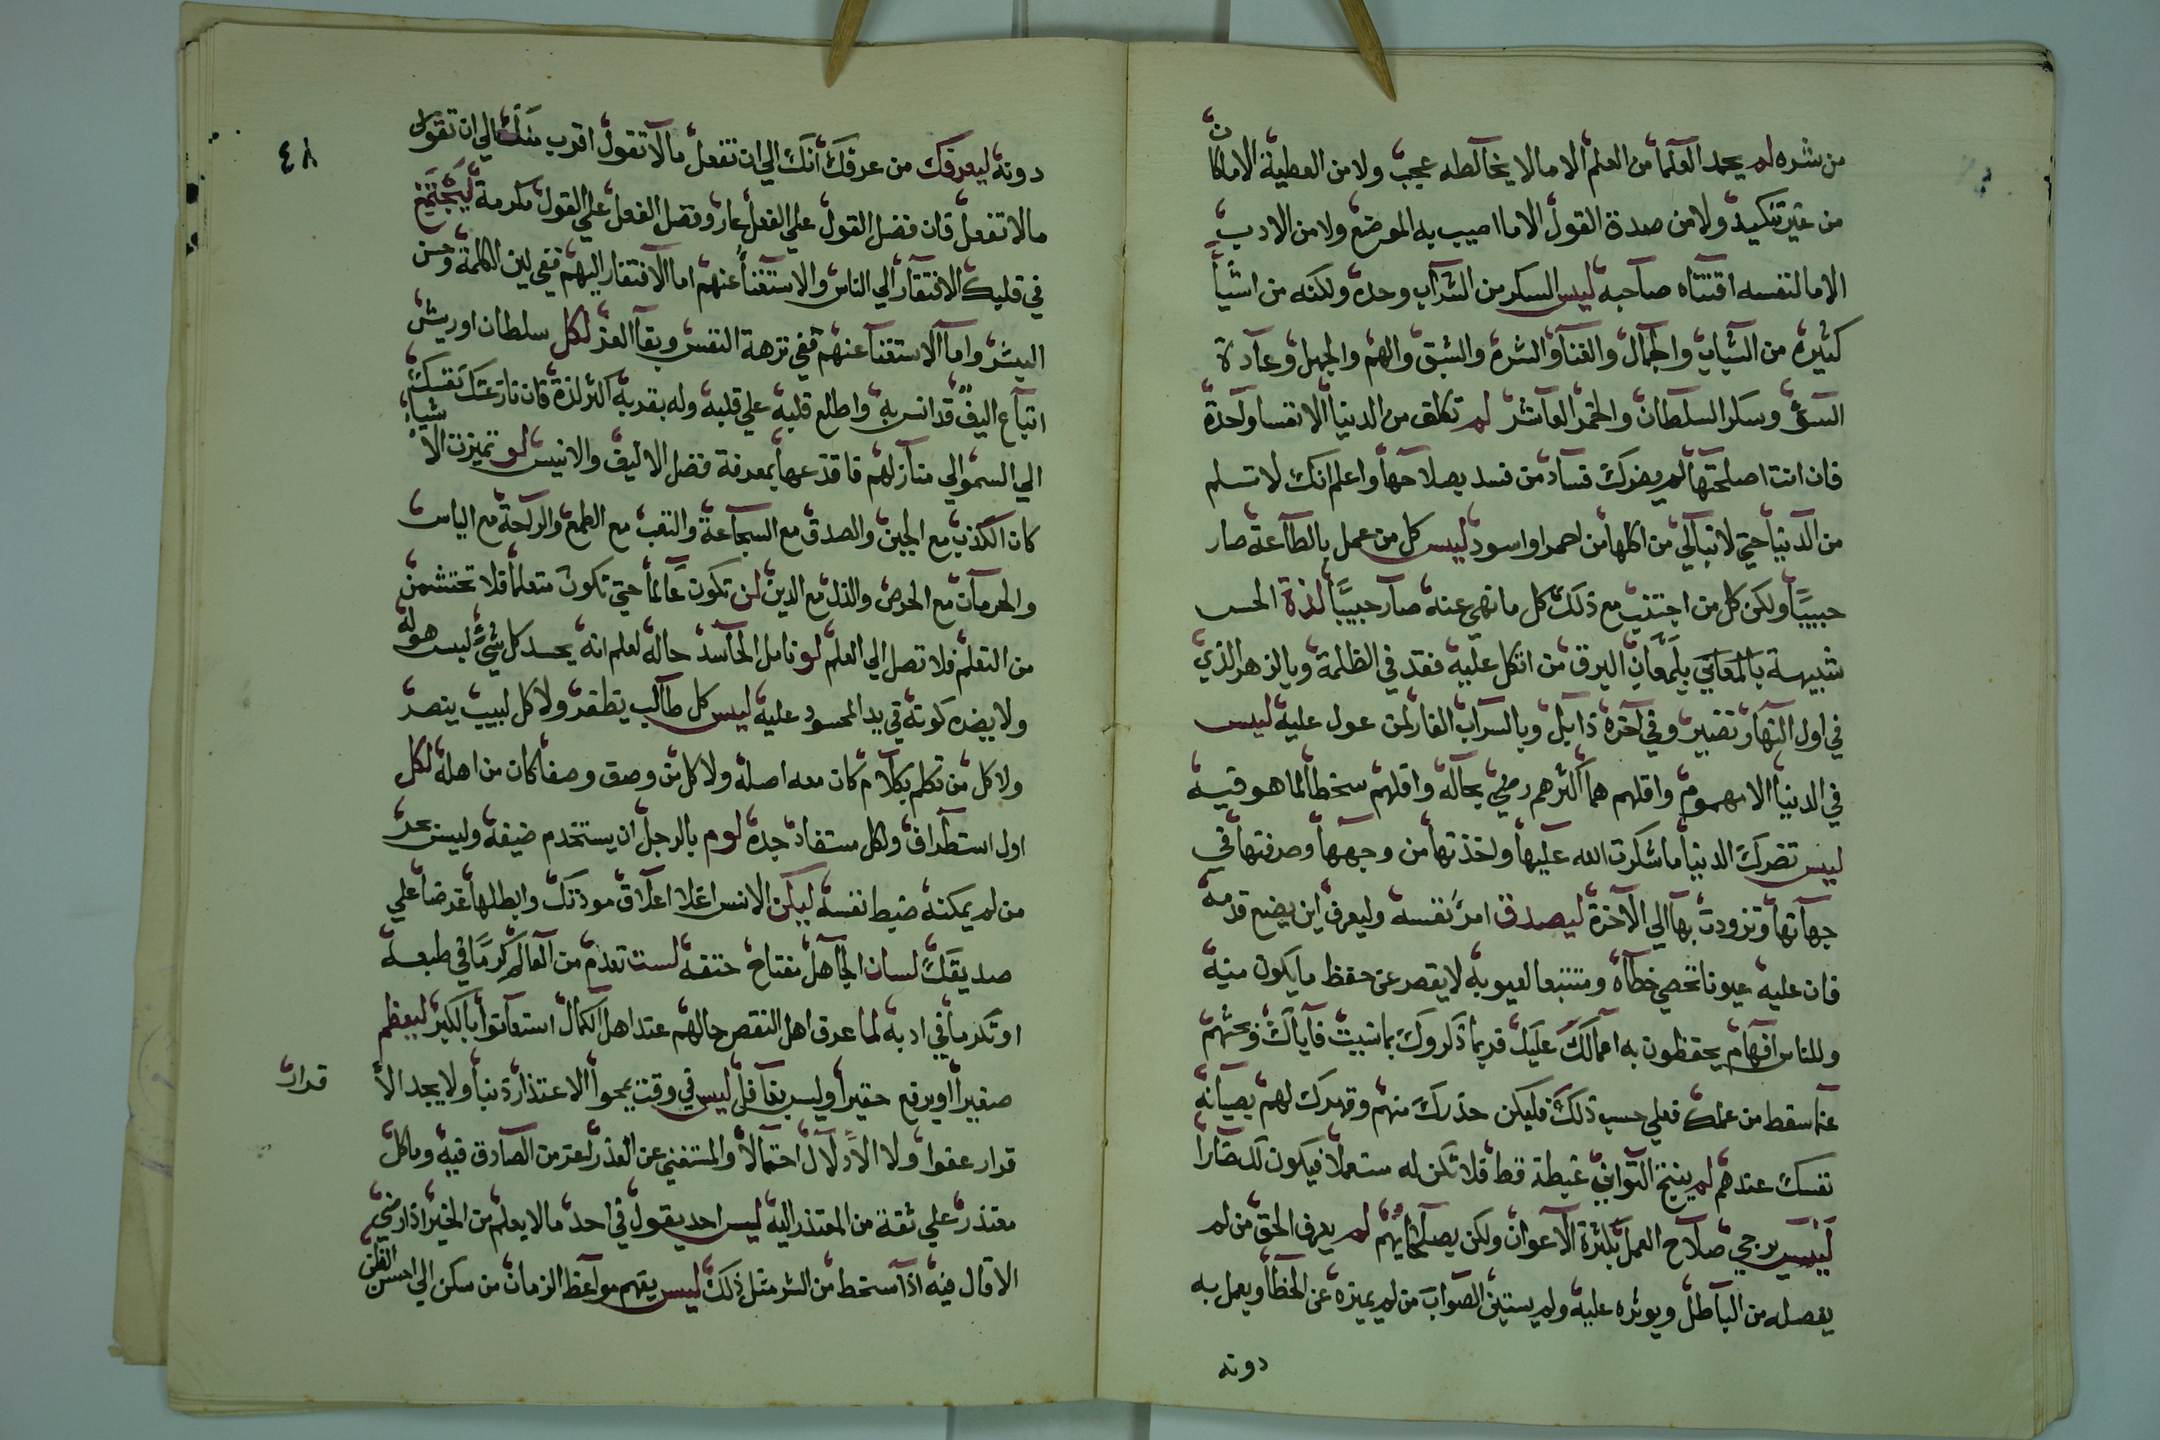 من شره لم يحمد العلما من العلم الا مالا يخالطه عجب ولا من العطية الا ما كان
من غير تنكيد ولا من صدة القول الا ما اصيب به الموضع ولا من الادب
الا ما لنفسه اقتناه صاحبه ليس السكر من الشراب وحده ولكنه من اشيأ
كثيرة من الشباب والجمال والغنا والشره والشبق والهم والجهل وعادة
السؤ وسكر السلطان والخمر العاشر لم تكلف من الدنيا الا نفسا واحدة
فان انت اصلحتها لم يضرك فساد من فسد بصلاحها واعلم انك لا تسلم
من الدنيا حتي لا تبالي من اكلها من احمر او اسود ليس كل من عمل بالطاعة صار
حبيبًا ولكن كل من اجتنب مع ذلك كل ما نهي عنه صار حبيبًا لذة الحس
شبيهة بلمعان البرق من اتكل عليه فقد في الظلمة وبالزهر الذي
في اول النهار نضير وفي اخره ذابل وبالسراب الغار لمن عول عليه ليس
في الدنيا الا مهموم واقلهم هما اكثرهم رضي بحاله واقلهم سخطا لما هو فيه
ليس تضرك الدنيا ما شكرت الله عليها واخذتها من وجهها وصرفتها في
جهاتها وتزودت بها الي الاخرة ليصدق امرؤ نفسه وليعرف اين يضع قدمه
فان عليه عيونا تحصي خطاه ومتتبعا لعيوبه لا يقصر عن حفظ ما يكون منه
وللناس افهام يحفظون به اعمالك عليك فربما ذكروك بما نسيت فاياك وبحثهم
عما سقط من عملك فعلي حسب ذلك فليكن حذرك منهم وقهرك لهم بصيانة
نفسك عندهم لم ينتج التواني غبطة قط فلا تكن له مستعملا فيكون لك ضارا
ليس يرجي صلاح العمل بكثرة الاعوان ولكن بصلحايهم لم يعرف الحق من لم
يفصله من الباطل ويوثره عليه ولم يستبن الصواب من لم يميزه عن الخطا ويعمل به
دونه
٤٨
دونه ليعرفك من عرفك انك الي ان تفعل ما لا تقول اقرب منك الي ان تقول
ما لا تفعل فان فضل القول علي الفعل عار وفضل الفعل علي القول مكرمة ليجتمع
في قلبك الافتقار الي الناس والاستغنا عنهم اما الافتقار اليهم ففي لين الكلمة وحسن
البشر واما الاستغنا عنهم ففي نزهة النفس وبقا العز لكل سلطان او ريس
اتباع اليف قد انس به واطلع قلبه علي قلبه وله بقربه اكثر لذة فان نازعتك نفسك
الي السمو الي منازلهم فاقذعها بمعرفة فضل الاليف والانيس لو تميزت الاشياء
كان الكذب مع الجبن والصدق مع الشجاعة والتعب مع الطمع والراحة مع الياس
والحرمان مع الحرص والذل مع الدين لن تكون عالما حتي تكون متعلما فلا تحتشمن
من التعلم فلا تصل الي العلم لو تامل الحاسد حاله لعلم انه يحسد كل شيء ليس هو له
ولا يضره كونه في يد المحسود عليه ليس كل طالب يظفر ولا كل لبيب ينصر
ولا كل من تكلم بكلام كان معه اصله ولا كل من وصف وصفا كان من اهله لكل
اول استطراف ولكل مستفاد جدة لوم بالرجل ان يستخدم ضيفه وليس بحر
من لم يمكنه ضبط نفسه ليكن الانس اغلا اعلاق مودتك وابطلها عرضا علي
صديقك لسان الجاهل مفتاح حتفه لست تعدم من العالم كرمًا في طبعه
او تكرما في ادبه لما عرف اهل النقص حالهم عند اهل الكمال استعانوا بالكبر ليعظم
صغيرا او يرفع حقيرا وليس بفاعل ليس في وقت يمحوا الاعتذار ذنبا ولا يجد الا
قرار
قرار عفوا ولا الادلال احتمالا والمستغني عن العذر اعز من الصادق فيه وما كل
معتذر علي ثقة من المعتذر اليه ليس احد يقول في احد ما لا يعلم من الخير اذا رضي
الا قال فيه اذا سخط من الشر مثل ذلك ليس يفهم مواعظ الزمان من سكن الي احسن الظن